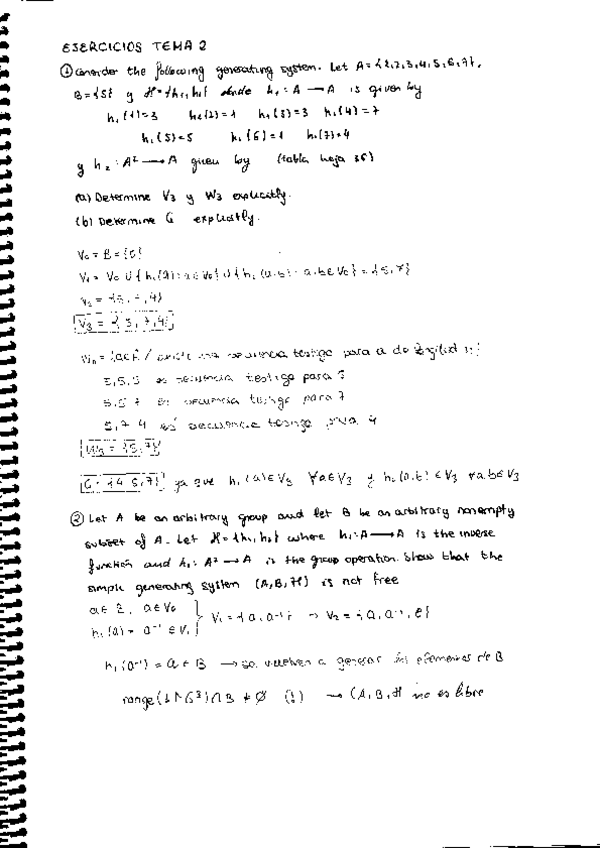 EJERCICIOS TEMA 2
① Consider the following generating system. Let A={1,2,3,4,5,6,7},
B={5} y H={h₁,h₂} donde h₁: A → A is given by
h₁(1)=3 h₁(2)=1 h₁(3)=3 h₁(4)=7
h₁(5)=5 h₁(6)=1 h₁(7)=4
y h₂: A² → A given by (tabla hoja 36)
(a) Determine V₃ y W₃ explicitly.
(b) Determine G explicitly.
V₀ = B = {5}
V₁ = V₀ ∪ {h₁(a): a∈V₀} ∪ {h₂(a,b): a,b∈V₀} = {5,7}
V₂ =
V₃ = { 5, 7, 4}
secuencia testigo para a de longitud n}
5,5,5 es secuencia testigo para 5
5,5,7 es secuencia testigo para 7
5,7,4 es secuencia testigo para 4
W₃ = {5,7}
G = {4,5,7} ya que h₁(a)∈V₃ ∀a∈V₃ y h₂(a,b)∈V₃ ∀a,b∈V₃
② Let A be an arbitrary group and let B be an arbitrary nonempty
subset of A. Let H={h₁,h₂} where h₁: A → A is the inverse
function and h₂: A² → A is the group operation. Show that the
simple generating system (A,B,H) is not free
a∈ a∈V₀
h₁(a) = a⁻¹ ∈ V₁ } V₁ = {a, a⁻¹} → V₂ = {a, a⁻¹, e}
h₁(a⁻¹) = a ∈ B → se vuelven a generar los elementos de B
∩ B ≠ ∅ (!) → (A,B,H no es libre